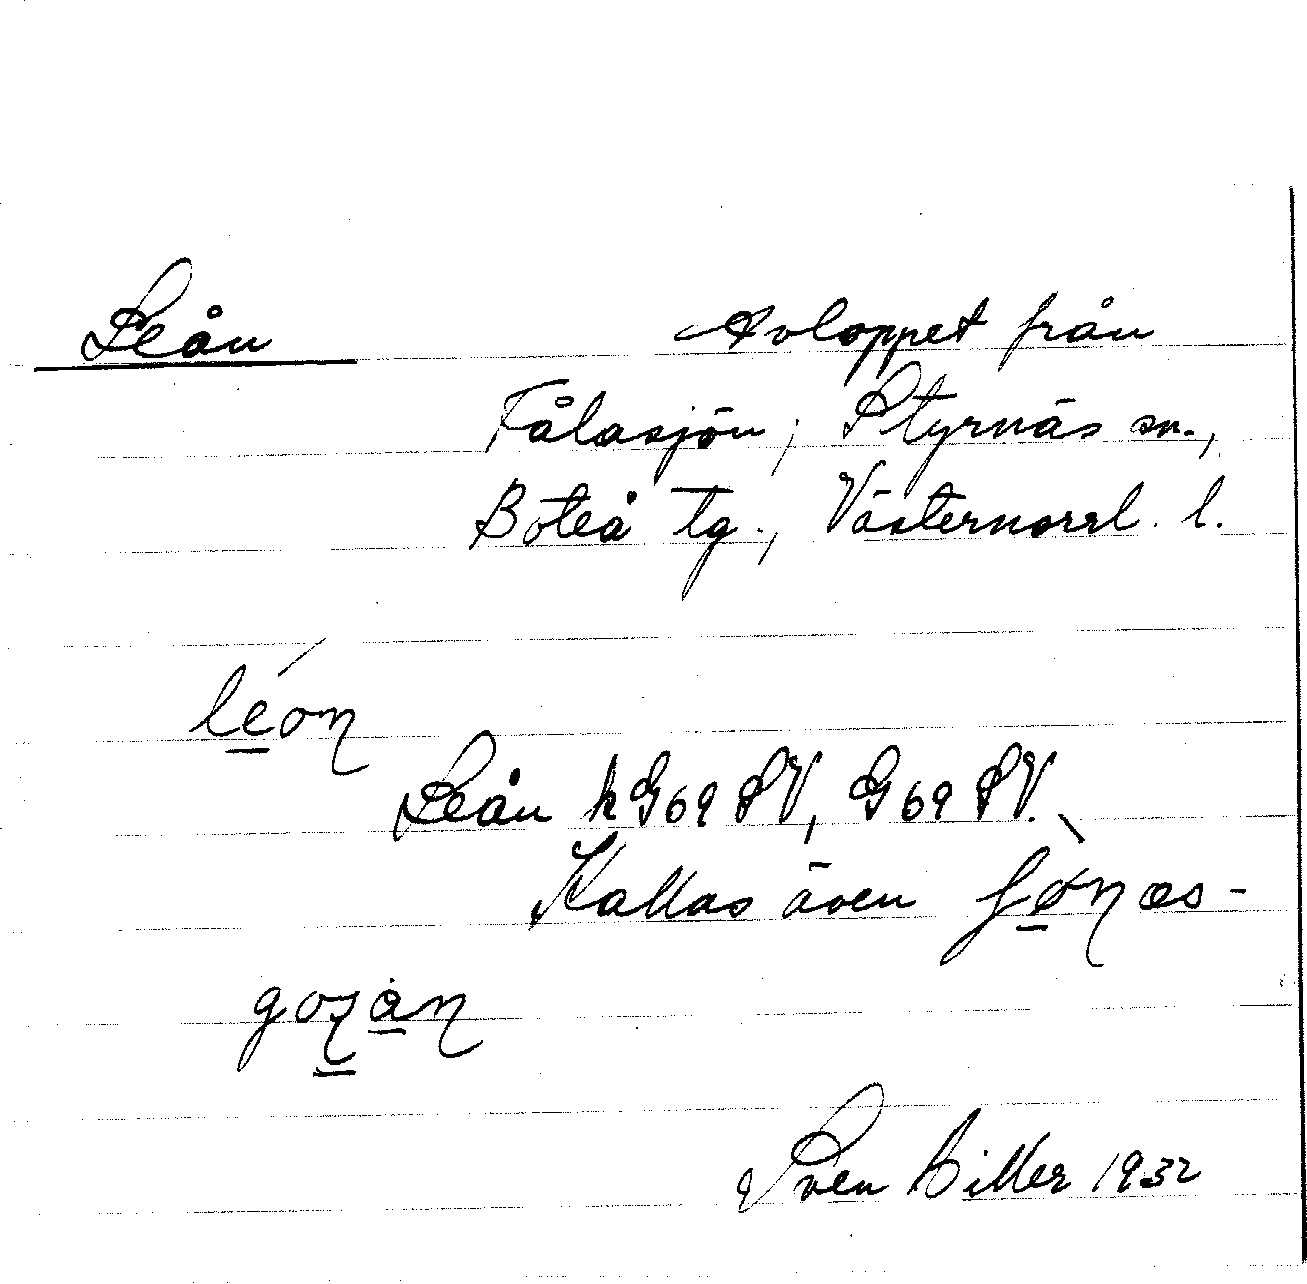 Leån
Avloppet från
Fålasjön, Styrnäs sn.,
Boteå tg., Västernorrl. l.
léon
Leån k G69 SV, G69 SV.
Kallas även
Sven Hiller 1932